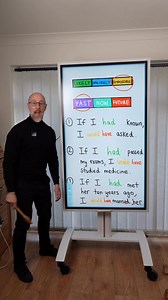 LIKELY UNLIKELY IMPOSSIBLE
PAST NOW FUTURE
1 If I had known,
I would have asked.
2 If I had passed
my exams, I would have
studied medicine.
3 If I had met
her ten years ago,
I would have married her.